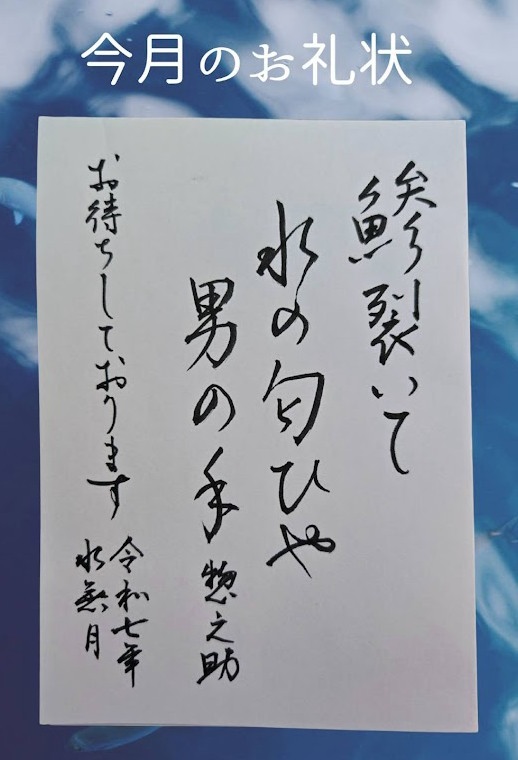 今月のお礼状
鯵裂いて
水の匂ひや
男の手 惣之助
お待ちしております
令和七年
水無月